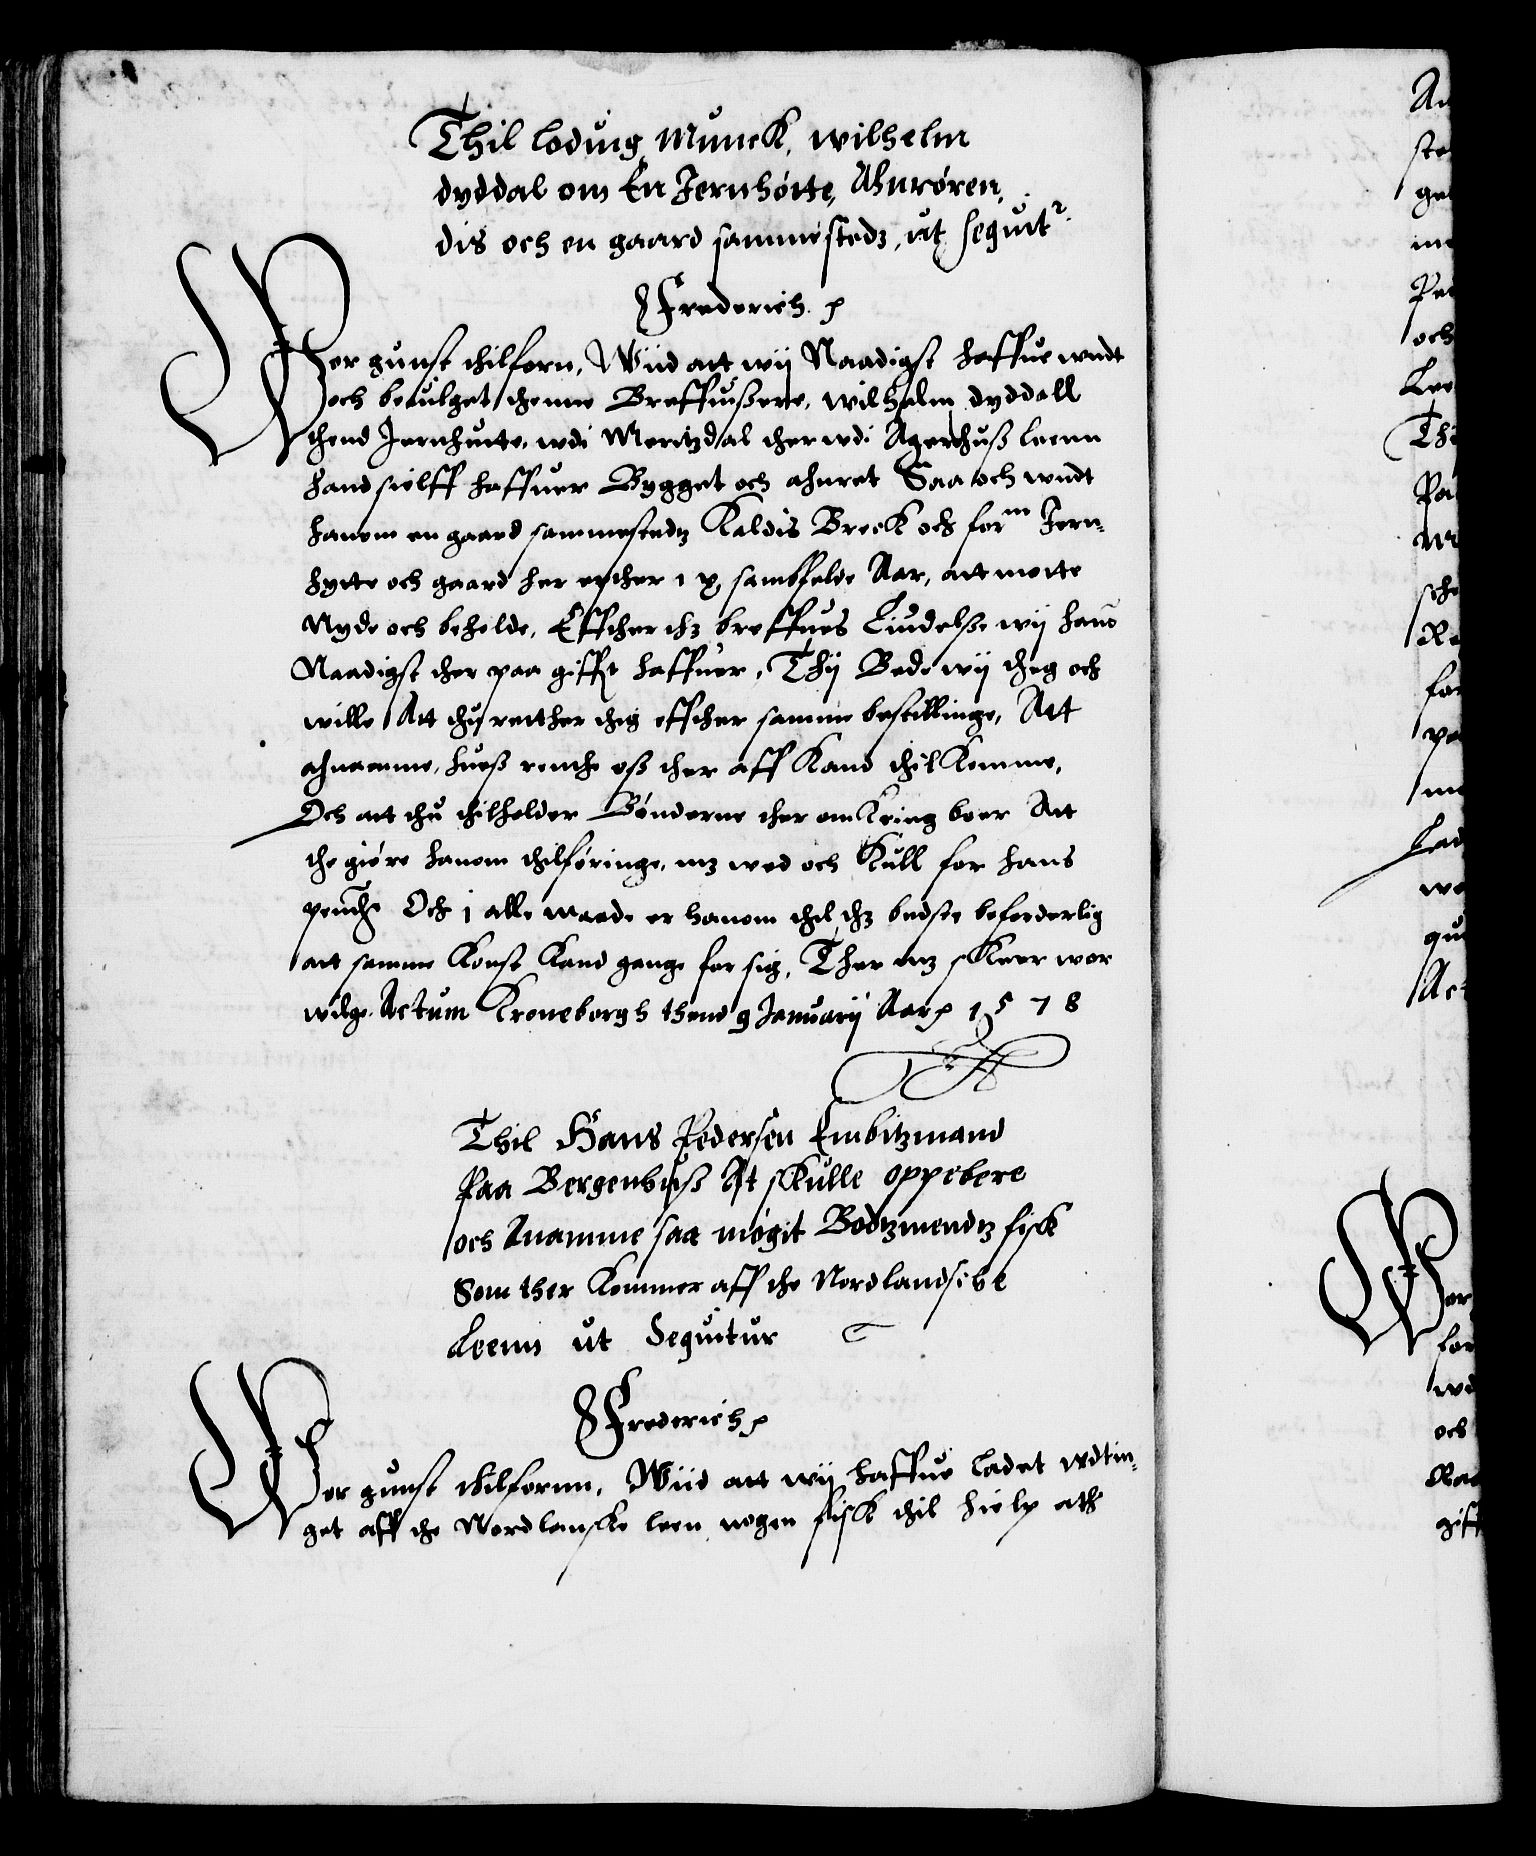 Thil loduig Munck, wilhelm
dyddal om En Jernhøtte, Ahnrøren,
dis och en gaard sammestedz, ut sequitr
Frederich p
Wor gunst thilforn, Wiid att wij Naadigst haffue wndt
och beuilget thenne Breffuißere, wilhelm dyddall
thend Jernhutte, wdi Moritzdal ther wdi Agerhuß leenn
hand sielff haffuer Bygget och ahnret Saa och wndt
hanom en gaard sammestedz Kaldis Breck och form Jern,
hytte och gaard her epther i x samfelde Aar, att motte
Nyde och beholde, Effther thz breffues Liudelße wij hans
Naadigst ther paa gifft haffuer, Thij Bede wij theg och
wille Att thu retther theg effther samme bestillinge, Att
ahnamme, hueß renthe oß ther aff Kand thil Komme,
Och att thu thilholder Bønderne ther omkring boer Att
the giøre hanom thilføringe, mz wed och Kull for hans
pendh Och i alle maade er hanom thil thz bedste beforderlig
att samme Konst Kand gange for sig, Ther mz skeer wor
wilge. Actum Kroneborgh thend 9 Januarij Aar p 1578
Thil Hans Pedersen Embitzmand
Paa Bergenhuß At skulle oppebere
och Anamme saa møgit Bodtzmendtz fisk
Som ther Kommer aff the Nordlandske
Leenn ut Sequitur
Frederich p
Wor gunst thilfornn, Wiid att wij haffue ladet wdtin,
get aff the Nordlanske leen nogen fisk thil hielp ath